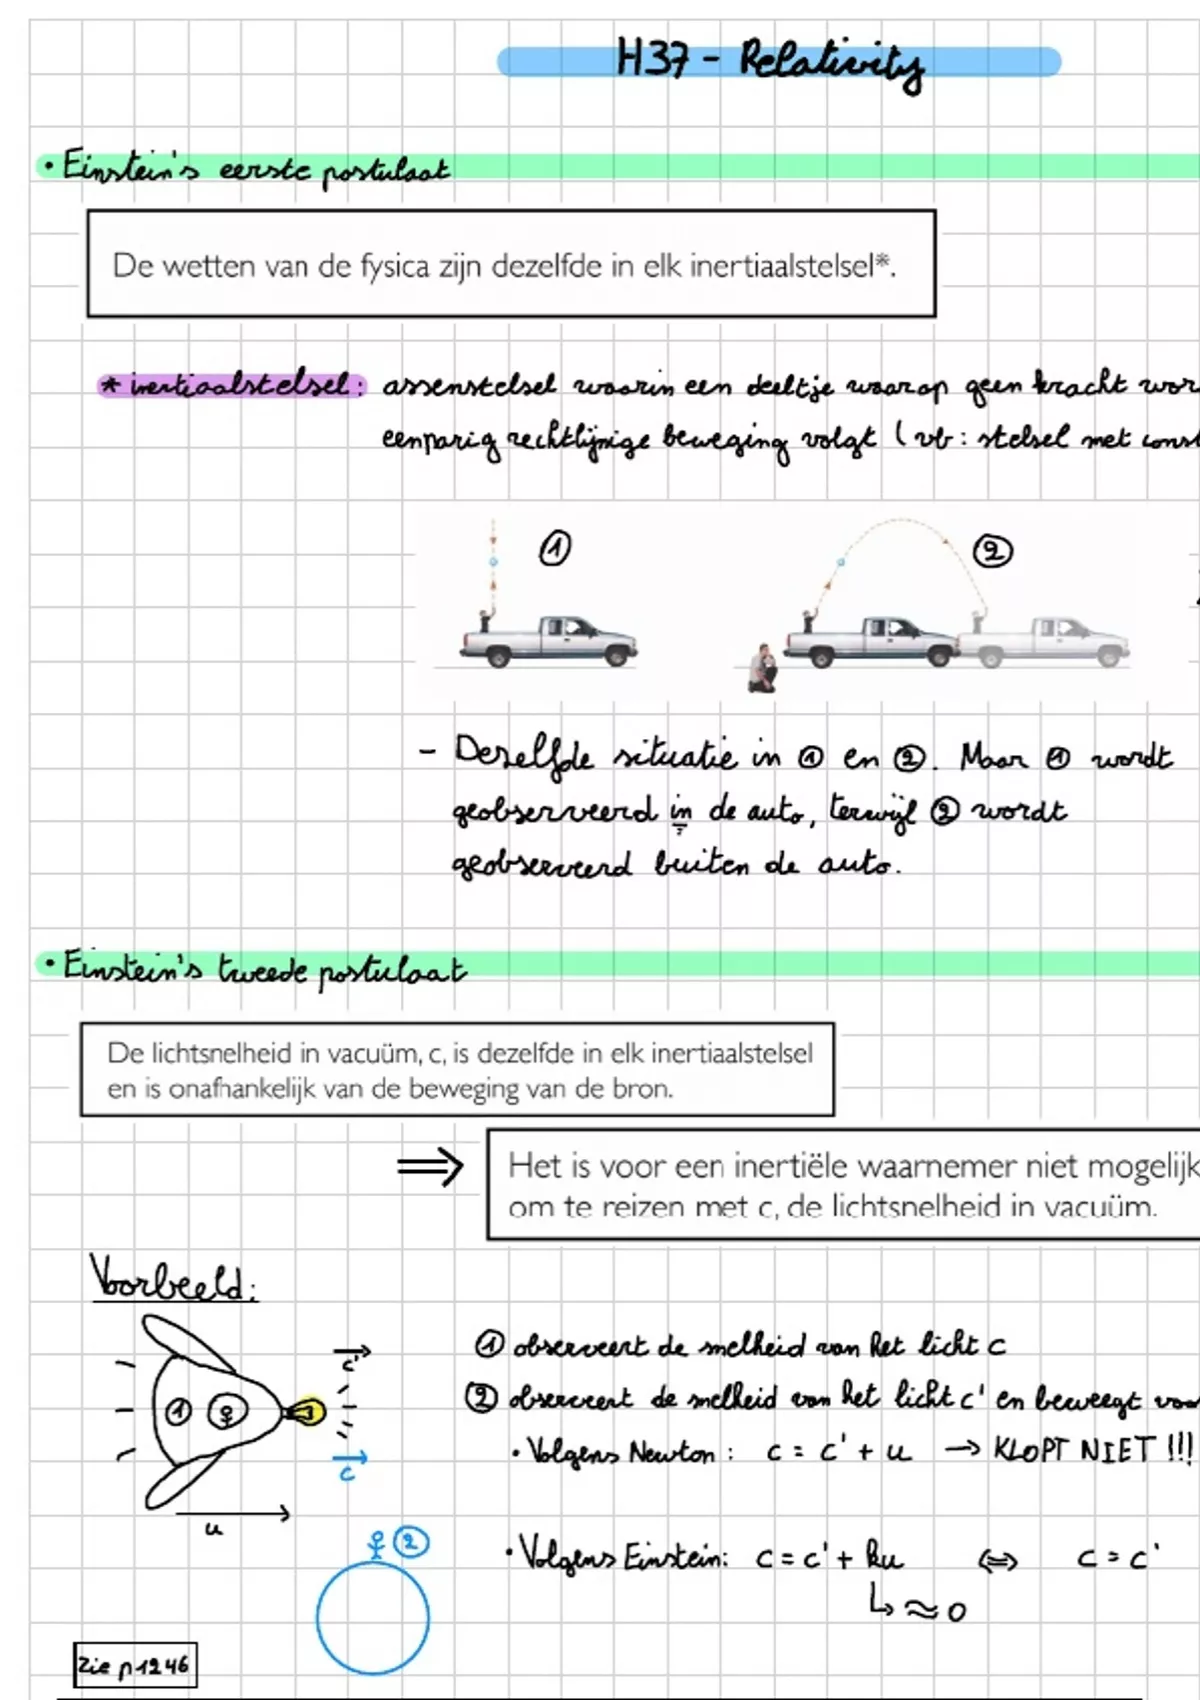 H37 - Relativity
• Einstein's eerste postulaat
De wetten van de fysica zijn dezelfde in elk inertiaalstelsel*.
* inertiaalstelsel: assenstelsel waarin een deeltje waarop geen kracht wor
eenparig rechtlijnige beweging volgt (vb: stelsel met const
1
2
- Dezelfde situatie in ① en ②. Maar ① wordt
geobserveerd in de auto, terwijl ② wordt
geobserveerd buiten de auto.
• Einstein's tweede postulaat
De lichtsnelheid in vacuüm, c, is dezelfde in elk inertiaalstelsel
en is onafhankelijk van de beweging van de bron.
⇒ Het is voor een inertiële waarnemer niet mogelijk
om te reizen met c, de lichtsnelheid in vacuüm.
Voorbeeld:
① observeert de snelheid van het licht c
② observeert de snelheid van het licht c' en beweegt voo
• Volgens Newton: c = c' + u → KLOPT NIET !!!
• Volgens Einstein: c = c' + ku ⇔ c = c'
↳ ≈ 0
c'
1
c
u
2
Zie p 1246